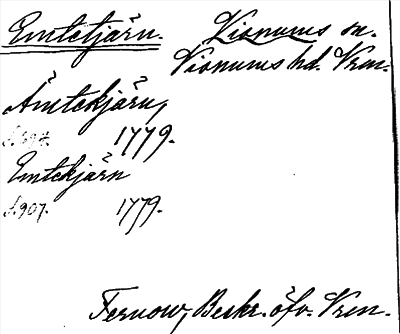 Emtetjärn. Visnums sn.
Visnums hd. Vrm.
Ämtekjärn,
s. 897. 1779.
Emtekjärn
s. 907. 1779.
Fernow, Beskr. öfv. Vrm.